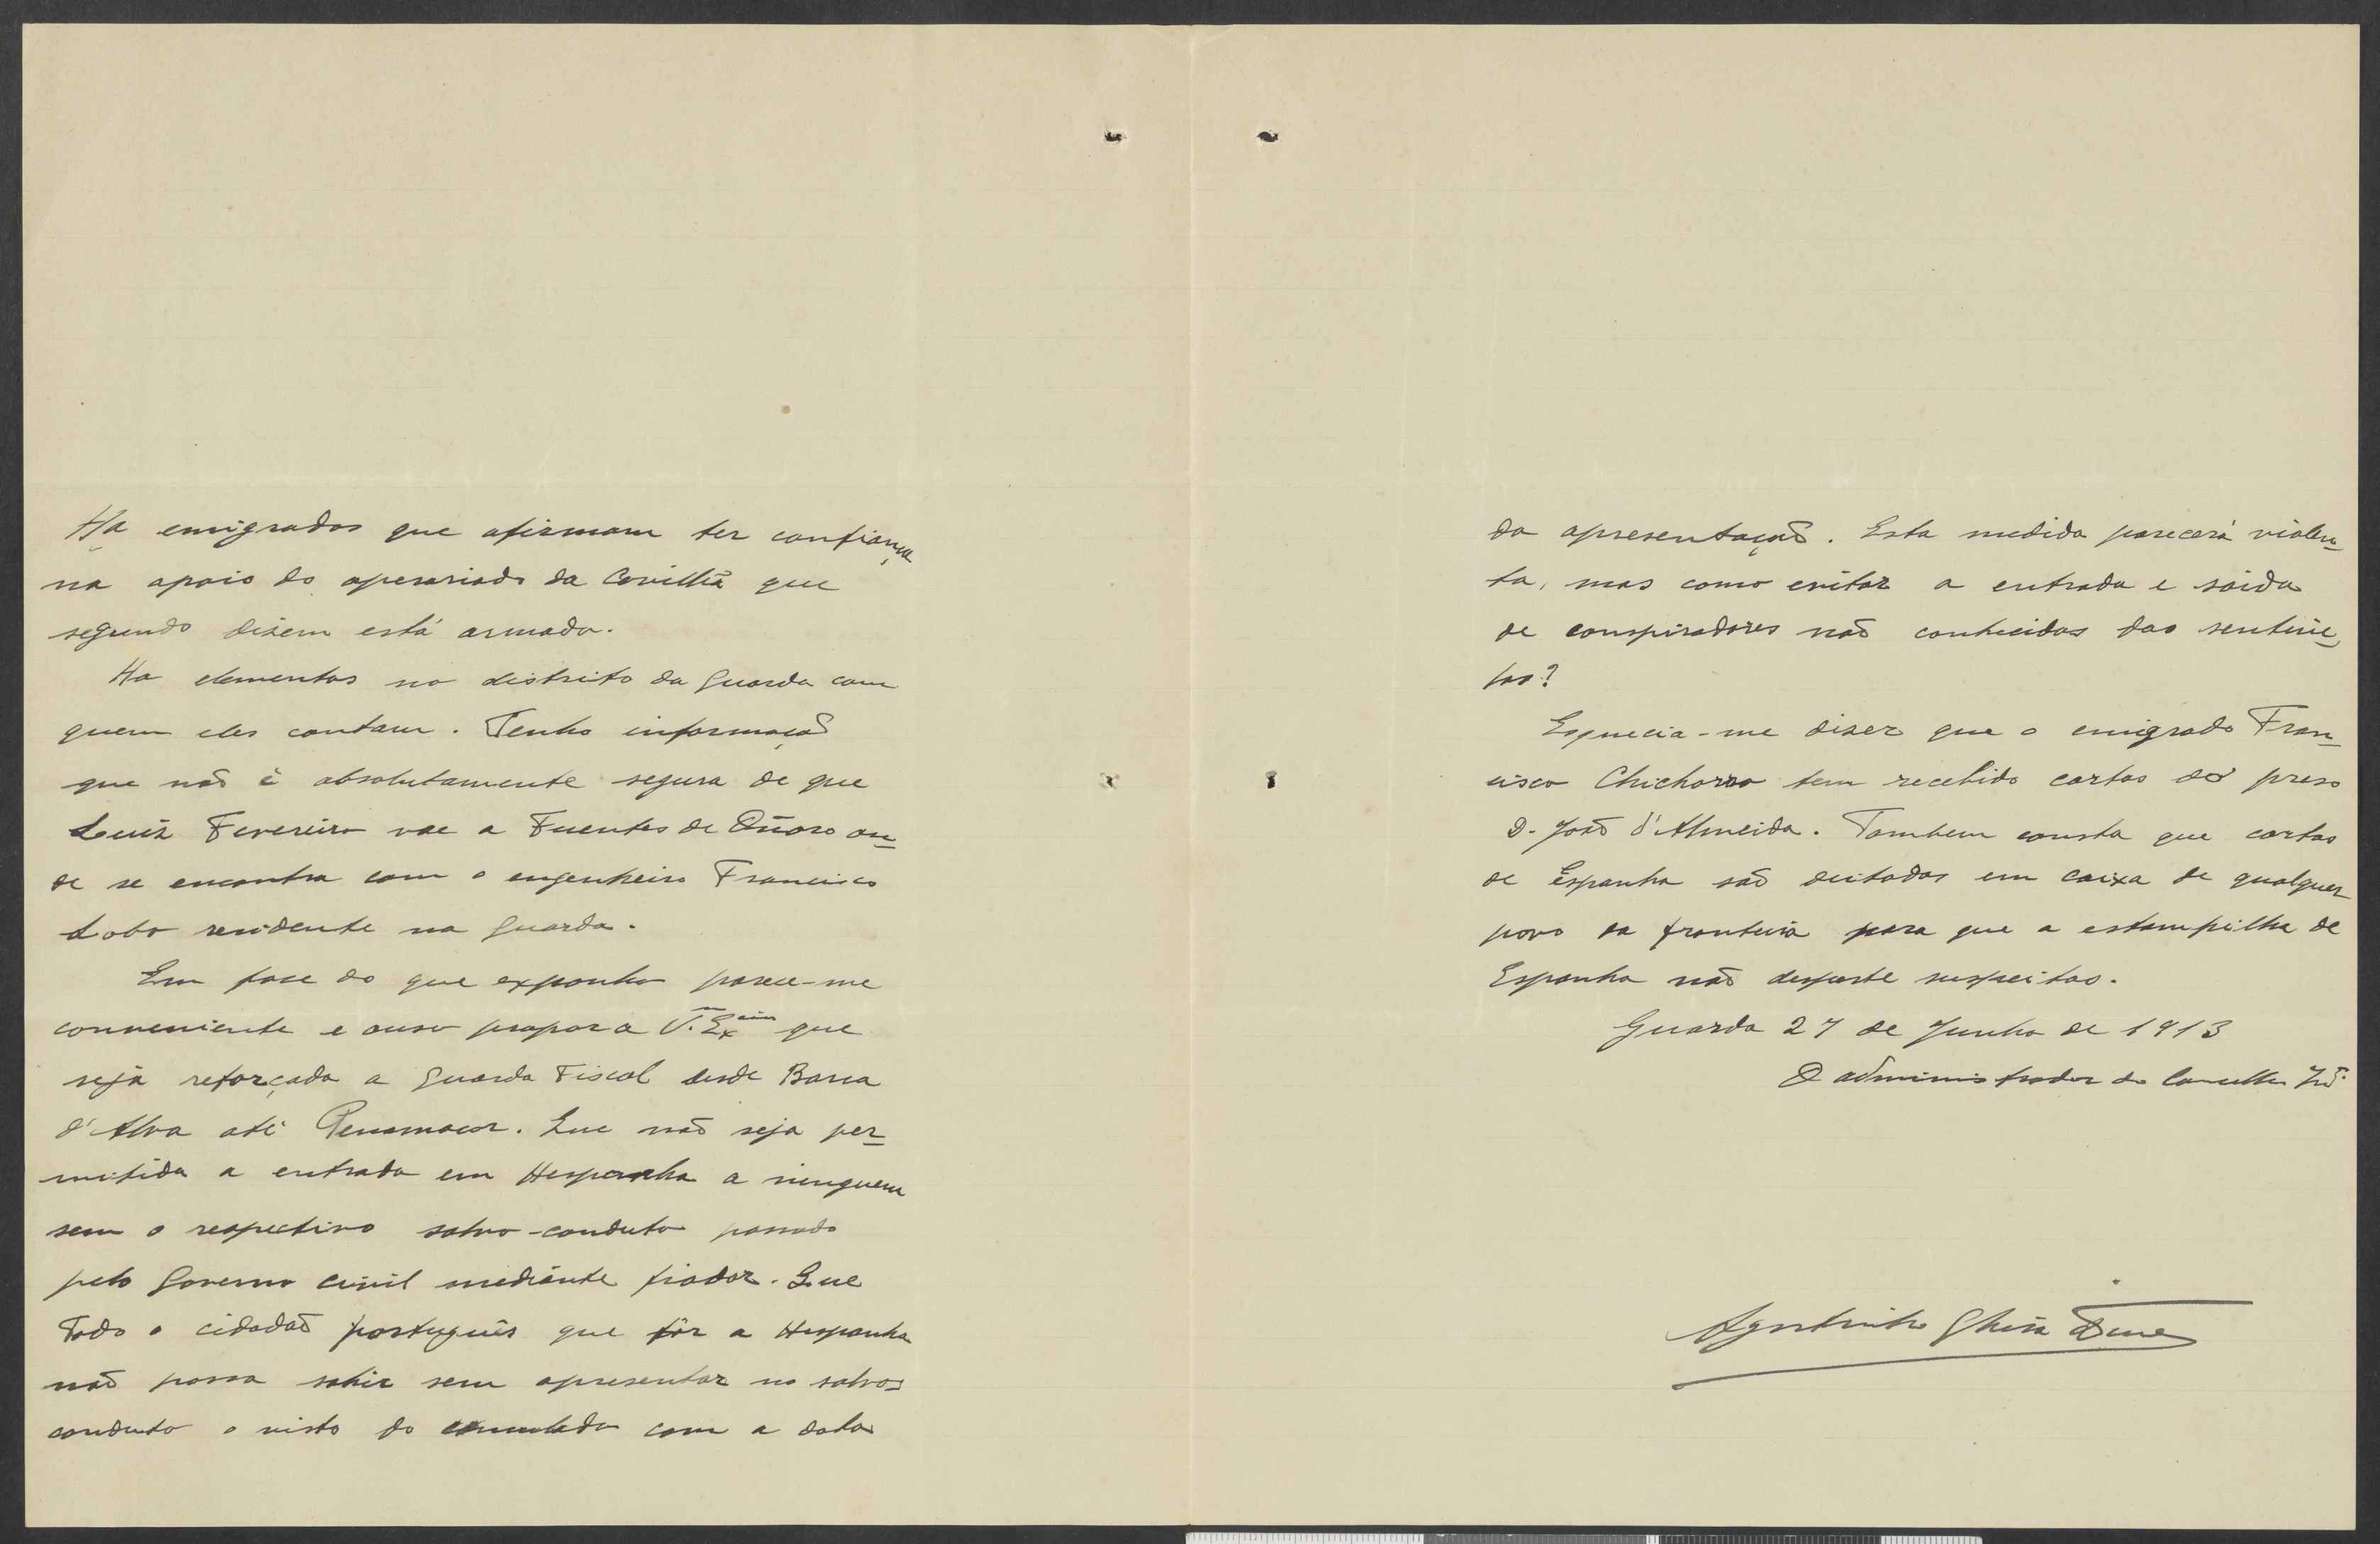 Ha emigrados que afirmam ter confiança
no apoio do operariado da Covilhã que
segundo dizem está armado.
Ha elementos no distrito da Guarda com
quem eles contam. Tenho informação
que não é absolutamente segura de que
Luiz Fevereiro vae a Fuentes de Oñoro on-
de se encontra com o engenheiro Francisco
Lobo residente na Guarda.
Em face do que exponho parece-me
conveniente e ouso propor a V. Exª que
seja reforçada a Guarda Fiscal desde Barca
d'Alva até Penamacor. Que não seja per-
mitida a entrada em Hespanha a ninguem
sem o respectivo salvo-conduto passado
pelo Governo civil mediante fiador. Que
todo o cidadão português que fôr a Hespanha
não possa sahir sem apresentar no salvo-
conduto o visto do consulado com a data
da apresentação. Esta medida parecerá violen-
ta, mas como evitar a entrada e saida
de conspiradores não conhecidos das sentine-
las?
Esquecia-me dizer que o emigrado Fran-
cisco Chichorro tem recebido cartas do preso
D. João d'Almeida. Tambem consta que cartas
de Espanha são deitadas em caixa de qualquer
povo da fronteira para que a estampilha de
Espanha não desperte suspeitas.
Guarda 27 de Junho de 1913
O administrador do Concelho
Agostinho